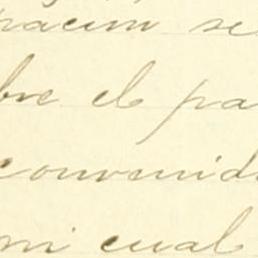 nacion se
bre el pa
convenid
ni cual